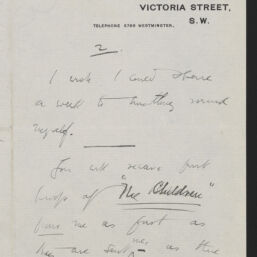 VICTORIA STREET,
S.W.
TELEPHONE 5700 WESTMINSTER.
2.
I wish I could
a week to
myself.
You will receive first
proofs of "The Children"
from me as fast as
are sent me as